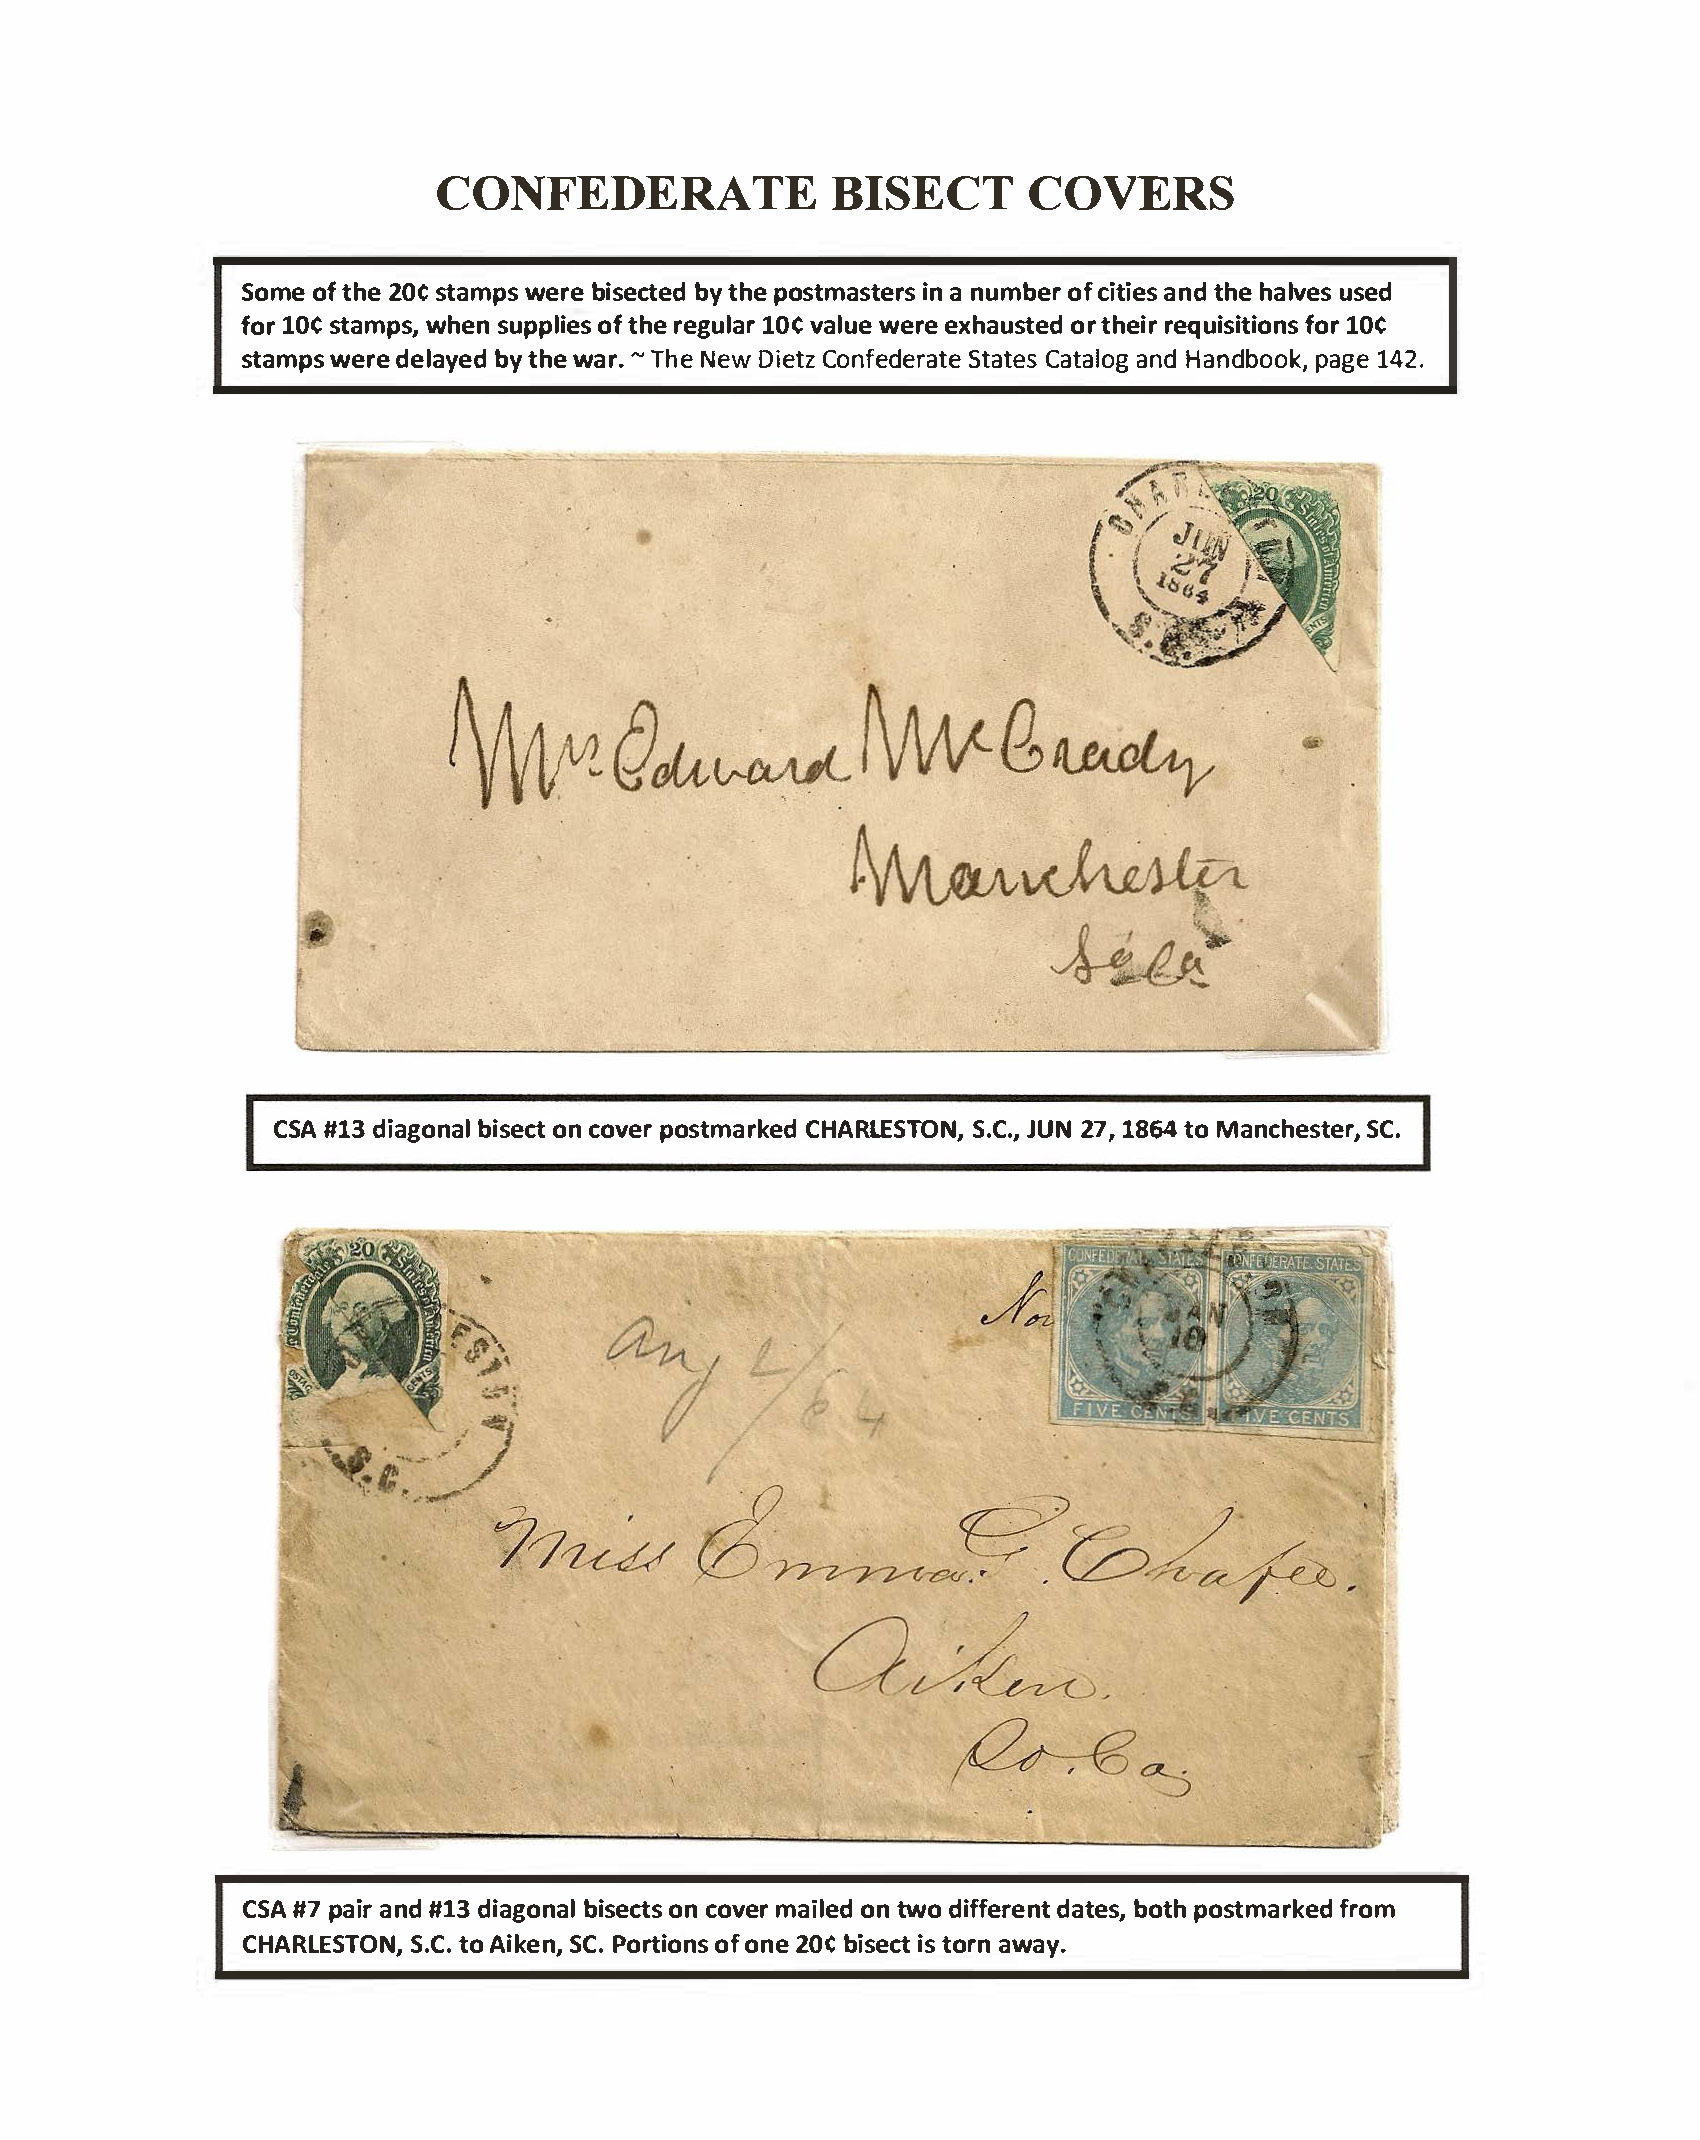 CONFEDERATE BISECT COVERS
Some of the 20¢ stamps were bisected by the postmasters in a number of cities and the halves used
for 10¢ stamps, when supplies of the regular 10¢ value were exhausted or their requisitions for 10¢
stamps were delayed by the war. ~ The New Dietz Confederate States Catalog and Handbook, page 142.
20
States of America
ENTS
JUN
27
1864
S.C.
Mrs Edward McCrady
Manchester
So Ca
CSA #13 diagonal bisect on cover postmarked CHARLESTON, S.C., JUN 27, 1864 to Manchester, SC.
20
Confederate States of America
POSTAG CENTS
ESTON
S.C.
Aug 2/64
CONFEDERATE STATES
FIVE CENTS
CONFEDERATE STATES
FIVE CENTS
JAN
10
Miss Emma G. Chafee.
Aiken.
So. Ca.
CSA #7 pair and #13 diagonal bisects on cover mailed on two different dates, both postmarked from
CHARLESTON, S.C. to Aiken, SC. Portions of one 20¢ bisect is torn away.